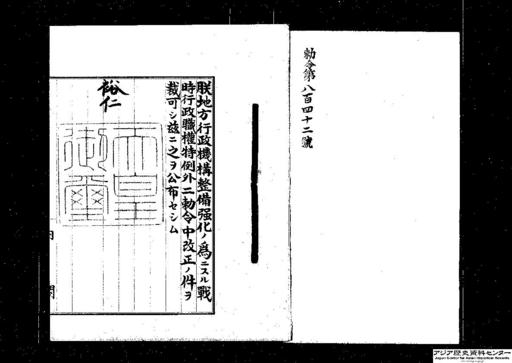 勅令第八百四十二號
朕地方行政機構整備强化ノ爲ニスル戰
時行政職權特例外二勅令中改正ノ件ヲ
裁可シ玆ニ之ヲ公布セシム
裕仁
天皇御璽
内
閣
アジア歴史資料センター
Japan Center for Asian Historical Records